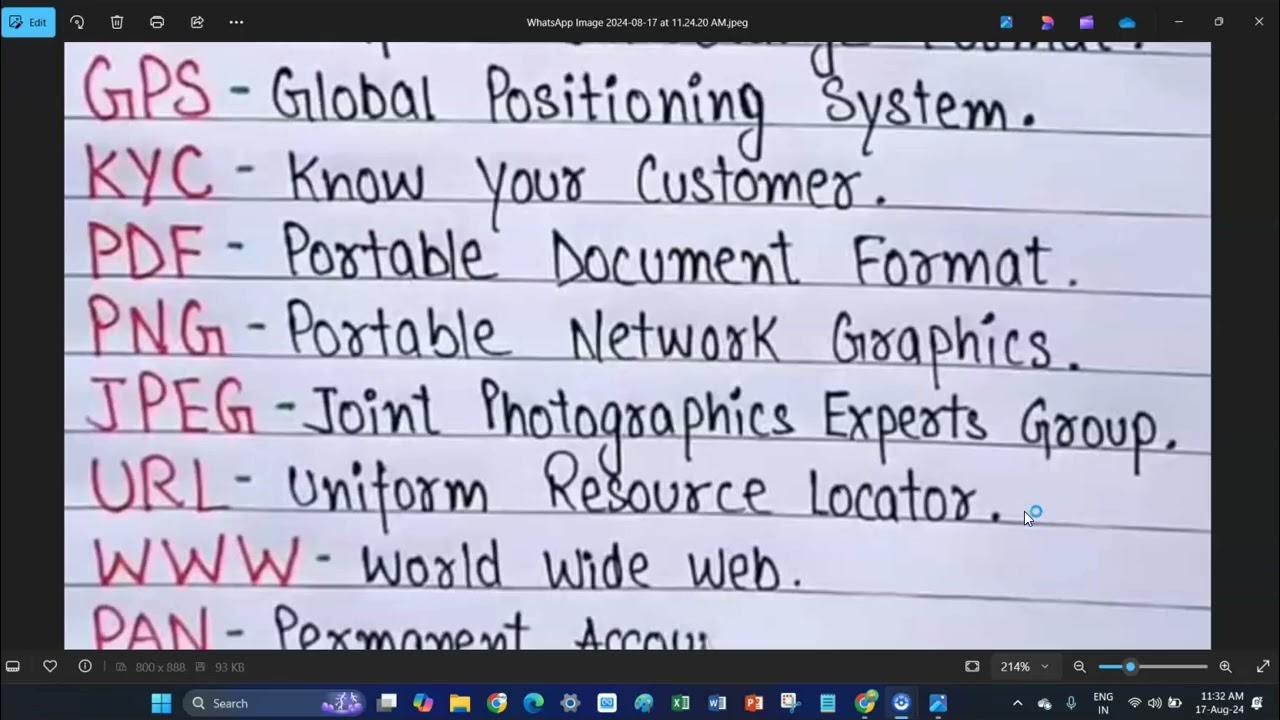 Edit
WhatsApp Image 2024-08-17 at 11.24.20 AM.jpeg
Format.
GPS - Global Positioning System.
KYC - Know Your Customer.
PDF - Portable Document Format.
PNG - Portable Network Graphics.
JPEG - Joint Photographics Experts Group.
URL - Uniform Resource Locator.
WWW - World Wide Web.
PAN - Permanent
800 x 888 93 KB 214%
Search ENG IN 11:32 AM 17-Aug-24